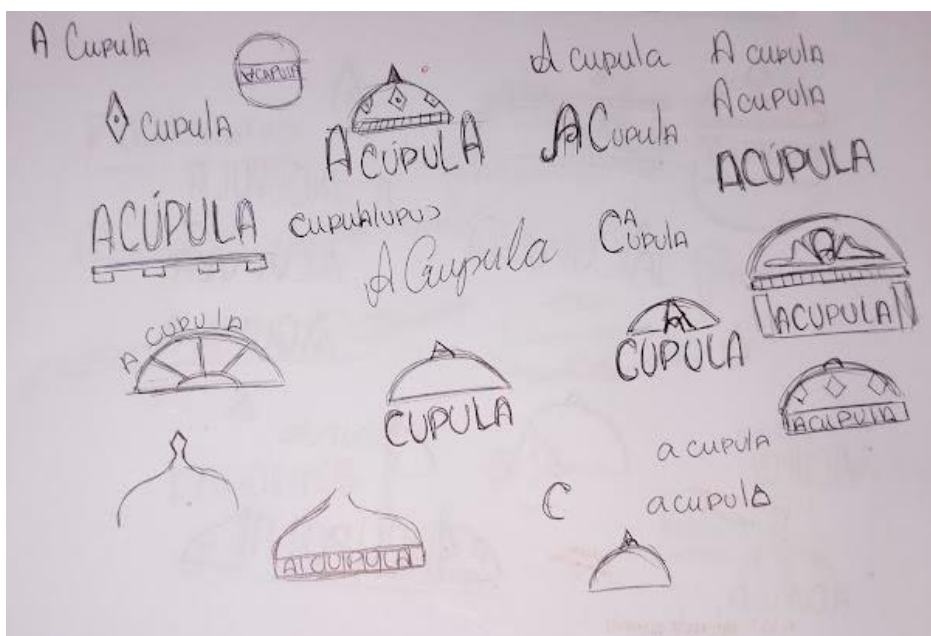 A Cupula
ACAPULA
A cupula
A cupula
CUPULA
ACÚPULA
ACupula
ACUPULA
ACÚPULA
ACÚPULA
A Cupula
CAÚPULA
ACUPULA
A CUPULA
CUPULA
CUPULA
ACUPULA
a cupula
C
acupula